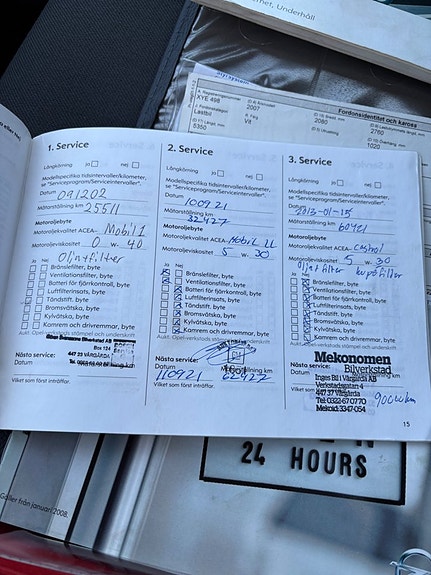 nternet, Underhåll
A. Registreringsnummer
XYE 498
D. Årsmodell
2007
Fordonsidentitet och kaross
Lastbil
F. Färg
Vit
2080
2760
5350
1020
1. Service
Långkörning ja nej
Modellspecifika tidsintervaller/kilometer,
se "Serviceprogram/Serviceintervaller".
Datum 091202
Mätarställning km 25511
Motoroljebyte
Motoroljekvalitet ACEA- Mobil 1
Motorviskositet 0 w- 40
Olja+filter
Ja Nej
Bränslefilter, byte
Ventilationsfilter, byte
Batteri för fjärrkontroll, byte
Luftfilterinsats, byte
Tändstift, byte
Bromsvätska, byte
Kylvätska, byte
Kamrem och drivremmar, byte
Aukt. Opel-verkstads stämpel och underskrift
Box 124
447 23 VÅRGÅRDA
Nästa service:
Datum
Vilket som först inträffar.
2. Service
Långkörning ja nej
Modellspecifika tidsintervaller/kilometer,
se "Serviceprogram/Serviceintervaller".
Datum 100921
Mätarställning km
32427
Motoroljebyte
Motoroljekvalitet ACEA- Mobil
Motorviskositet 5 w- 30
Ja Nej
Bränslefilter, byte
Ventilationsfilter, byte
Batteri för fjärrkontroll, byte
Luftfilterinsats, byte
Tändstift, byte
Bromsvätska, byte
Kylvätska, byte
Kamrem och drivremmar, byte
Aukt. Opel-verkstads stämpel och underskrift
Nästa service:
Datum
110921 62427
Vilket som först inträffar.
3. Service
Långkörning ja nej
Modellspecifika tidsintervaller/kilometer,
se "Serviceprogram/Serviceintervaller".
Datum
2013-01-15
Mätarställning km 60421
Motoroljebyte
Motoroljekvalitet ACEA- castrol
Motorviskositet 5 w- 30
Olja+filter kupéfilter
Ja Nej
Bränslefilter, byte
Ventilationsfilter, byte
Batteri för fjärrkontroll, byte
Luftfilterinsats, byte
Tändstift, byte
Bromsvätska, byte
Kylvätska, byte
Kamrem och drivremmar, byte
Aukt. Opel-verkstads stämpel och underskrift
Mekonomen
Bilverkstad
Nästa service:
Datum
Inges Bil i Vårgårda AB
Verkstadsgatan 4
447 37 Vårgårda
Tel: 0322-67 07 70
Mekoid: 3347-054
90000 km
Vilket som
15
24 HOURS
Gäller från januari 2008.